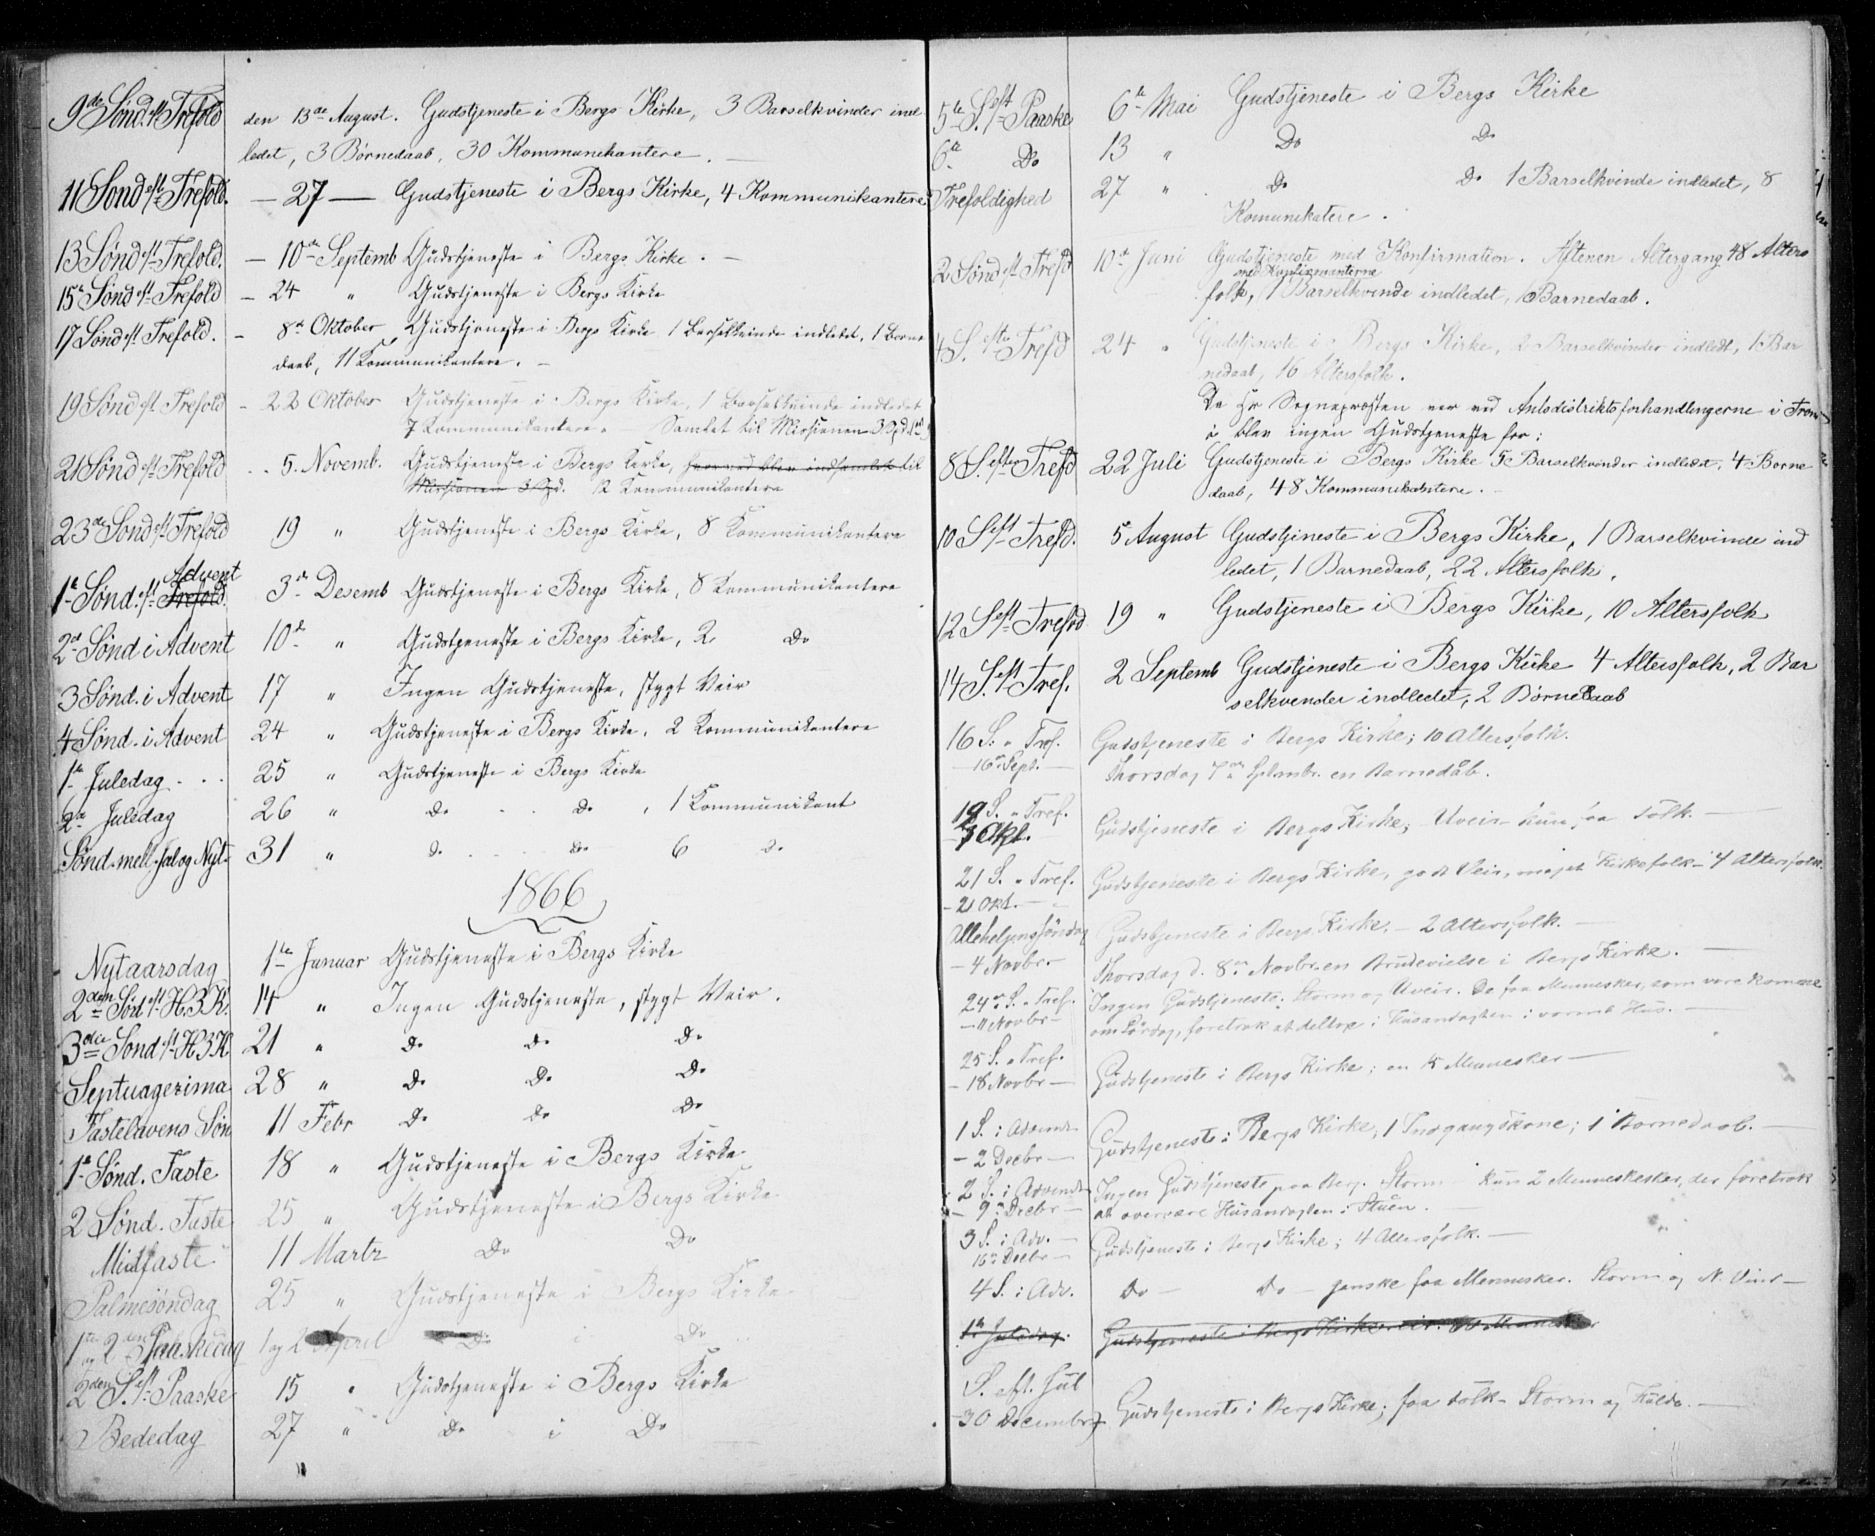 9de Sønd. eft Trefold den 13de August. Gudstjeneste i Bergs Kirke, 3 Barselkvinder ind
ledet, 3 Børnedaab, 30 Kommunikantere. —
11 Sønd eft Trefold. — 27 — Gudstjeneste i Bergs Kirke, 4 Kommunikantere
13 Sønd eft Trefold. — 10de Septemb Gudstjeneste i Bergs Kirke. —
15 Sønd eft Trefold — 24 " Gudstjeneste i Bergs Kirke
17 Sønd eft Trefold. — 8de Oktober Gudstjeneste i Bergs Kirke 1 Barselkvinde indledet, 1 Barne
daab, 11 Kommunikantere. —
19 Sønd eft Trefold — 22 Oktober Gudstjeneste i Bergs Kirke, 1 Barselkvinde indledet
7 Kommunikantere. — Samlet til Missionen 3 Spd
21 Sønd eft Trefold - - 5. Novemb. Gudstjeneste i Bergs Kirke, hvorved blev indsamlet til
Missionen 3 Spd. 2 Kommunikantere
23de Sønd eft Trefold 19 " Gudstjeneste i Bergs Kirke, 8 Kommunikantere
Advent
1te Sønd. eft Trefold. 3de Desemb Gudstjeneste i Bergs Kirke, 8 Kommunikantere
2den Sønd i Advent 10de " Gudstjeneste i Bergs Kirke, 2 Do
3 Sønd. i Advent 17 " Ingen Gudstjeneste, stygt Veir
4 Sønd. i Advent 24 " Gudstjeneste i Bergs Kirke, 2 Kommunikantere
1te Juledag - - - 25 " Gudstjeneste i Bergs Kirke
2den Juledag 26 " Do - - Do , 1 Kommunikant
Sønd. mell. Jul og Nyt. 31 " Do - - - Do 6 Do
1866
Nytaarsdag 1te Januar Gudstjeneste i Bergs Kirke
2den Sønd eft H.3.K. 14 " Ingen Gudstjeneste, stygt Veir.
3die Sønd eft H3K 21 " Do Do Do
Septuagezima 28 " Do Do Do
Fastelavens Søn 11 Febr Do Do Do
1te Sønd. Faste 18 " Gudstjeneste i Bergs Kirke
2 Sønd. Faste 25 " Gudstjeneste i Bergs Kirke
Midfaste 11 Martz Do Do
Palmesøndag 25 " Gudstjeneste i Bergs Kirke
1te og 2den Paaskedag 1 og 2 April Do i Do
2den S. eft Paaske 15 " Gudstjeneste i Bergs Kirke
Bededag 27 " Do i Do
5te S. eft Paaske 6te Mai Gudstjeneste i Bergs Kirke
6te Do 13 " Do Do
Trefoldighed 27 " Do Do 1 Barselkvinde indledet, 8
Komunikatere.
2 Sønd eft Trefd 10de Juni Gudstjeneste med Konfirmation. Aftenen Altergang 48 Alters
med Konfirmanterne
folk, 1 Barselkvende indledet, 1 Barnedaab.
4 S. efter Trefd 24 " Gudstjeneste i Bergs Kirke, 2 Barselkvinder indledt, 1 Bar
nedaab, 16 Altersfolk.
Da Hr Sogneprosten var ved Amtsdistriktsforhandlingerne i Trom-
ø blev ingen Gudstjeneste før:
8 S. efter Trefd 22 Juli Gudstjeneste i Bergs Kirke 5 Barselkvinder indledet, 4 Børne
daab, 48 Kommunikantere. —
10 S. eft Trefd. 5 August Gudstjeneste i Bergs Kirke, 1 Barselkvinde ind
ledet, 1 Barnedaab, 22 Altersfolk.
12 S. eft Trefold 19 " Gudstjeneste i Bergs Kirke, 10 Altersfolk
14 S. eft Tref. 2 Septemb Gudstjeneste i Bergs Kirke 4 Altersfolk, 2 Bar
selkvender indledet, 2 Børnedaab
16 S. " Tref. Gudstjeneste i Bergs Kirke; 10 Altersfolk.
— 16de Sept. — Thorsdag 7de Septmbr. en Barnedåb.
19 S. " Tref. Gudstjeneste i Bergs Kirke; Uveir - kun faa Folk. —
7 Okt. —
21 S. " Tref. Gudstjeneste i Bergs Kirke, godt Veir, meget Kirkefolk - 4 Altersfolk.
— 21 Okt. —
Allehelgenssøndag Gudstjeneste i Bergs Kirke. — 2 Altersfolk. —
— 4 Novbr. — Thorsdag d. 8de Novbr. en Brudevielse i Bergs Kirke. —
24de S. " Tref. Ingen Gudstjeneste; Storm og Uveir. De faa Mennesker, som vare komne
— 11 Novbr — om Lørdag, foretrak at deltage i Husandagten i varmt Hus. —
25 S. " Tref. Gudstjeneste i Bergs Kirke; en 15 Mennesker —
— 18 Novbr —
1 S. i Advent Gudstjeneste i Bergs Kirke, 1 Indgangskone; 1 Barnedaab. —
— 2 Decbr —
2 S. i Advent Ingen Gudstjeneste paa Berg. Storm - kun 2 Menneskesker, der foretrak
— 9de Decbr — at overvære Husandagten i Stuen. —
3 S. i Adv. — Gudstjeneste i Bergs Kirke; 4 Altersfolk. —
16de Decbr —
4 S. i Adv. Do — Do — ganske faa Mennesker. Storm og N. Vind —
1te Juledag. Gudstjeneste i Bergs Kirke
S. eft. Jul Gudstjeneste i Bergs Kirke; faa Folk - Storm og Kulde. —
— 30 Decembr